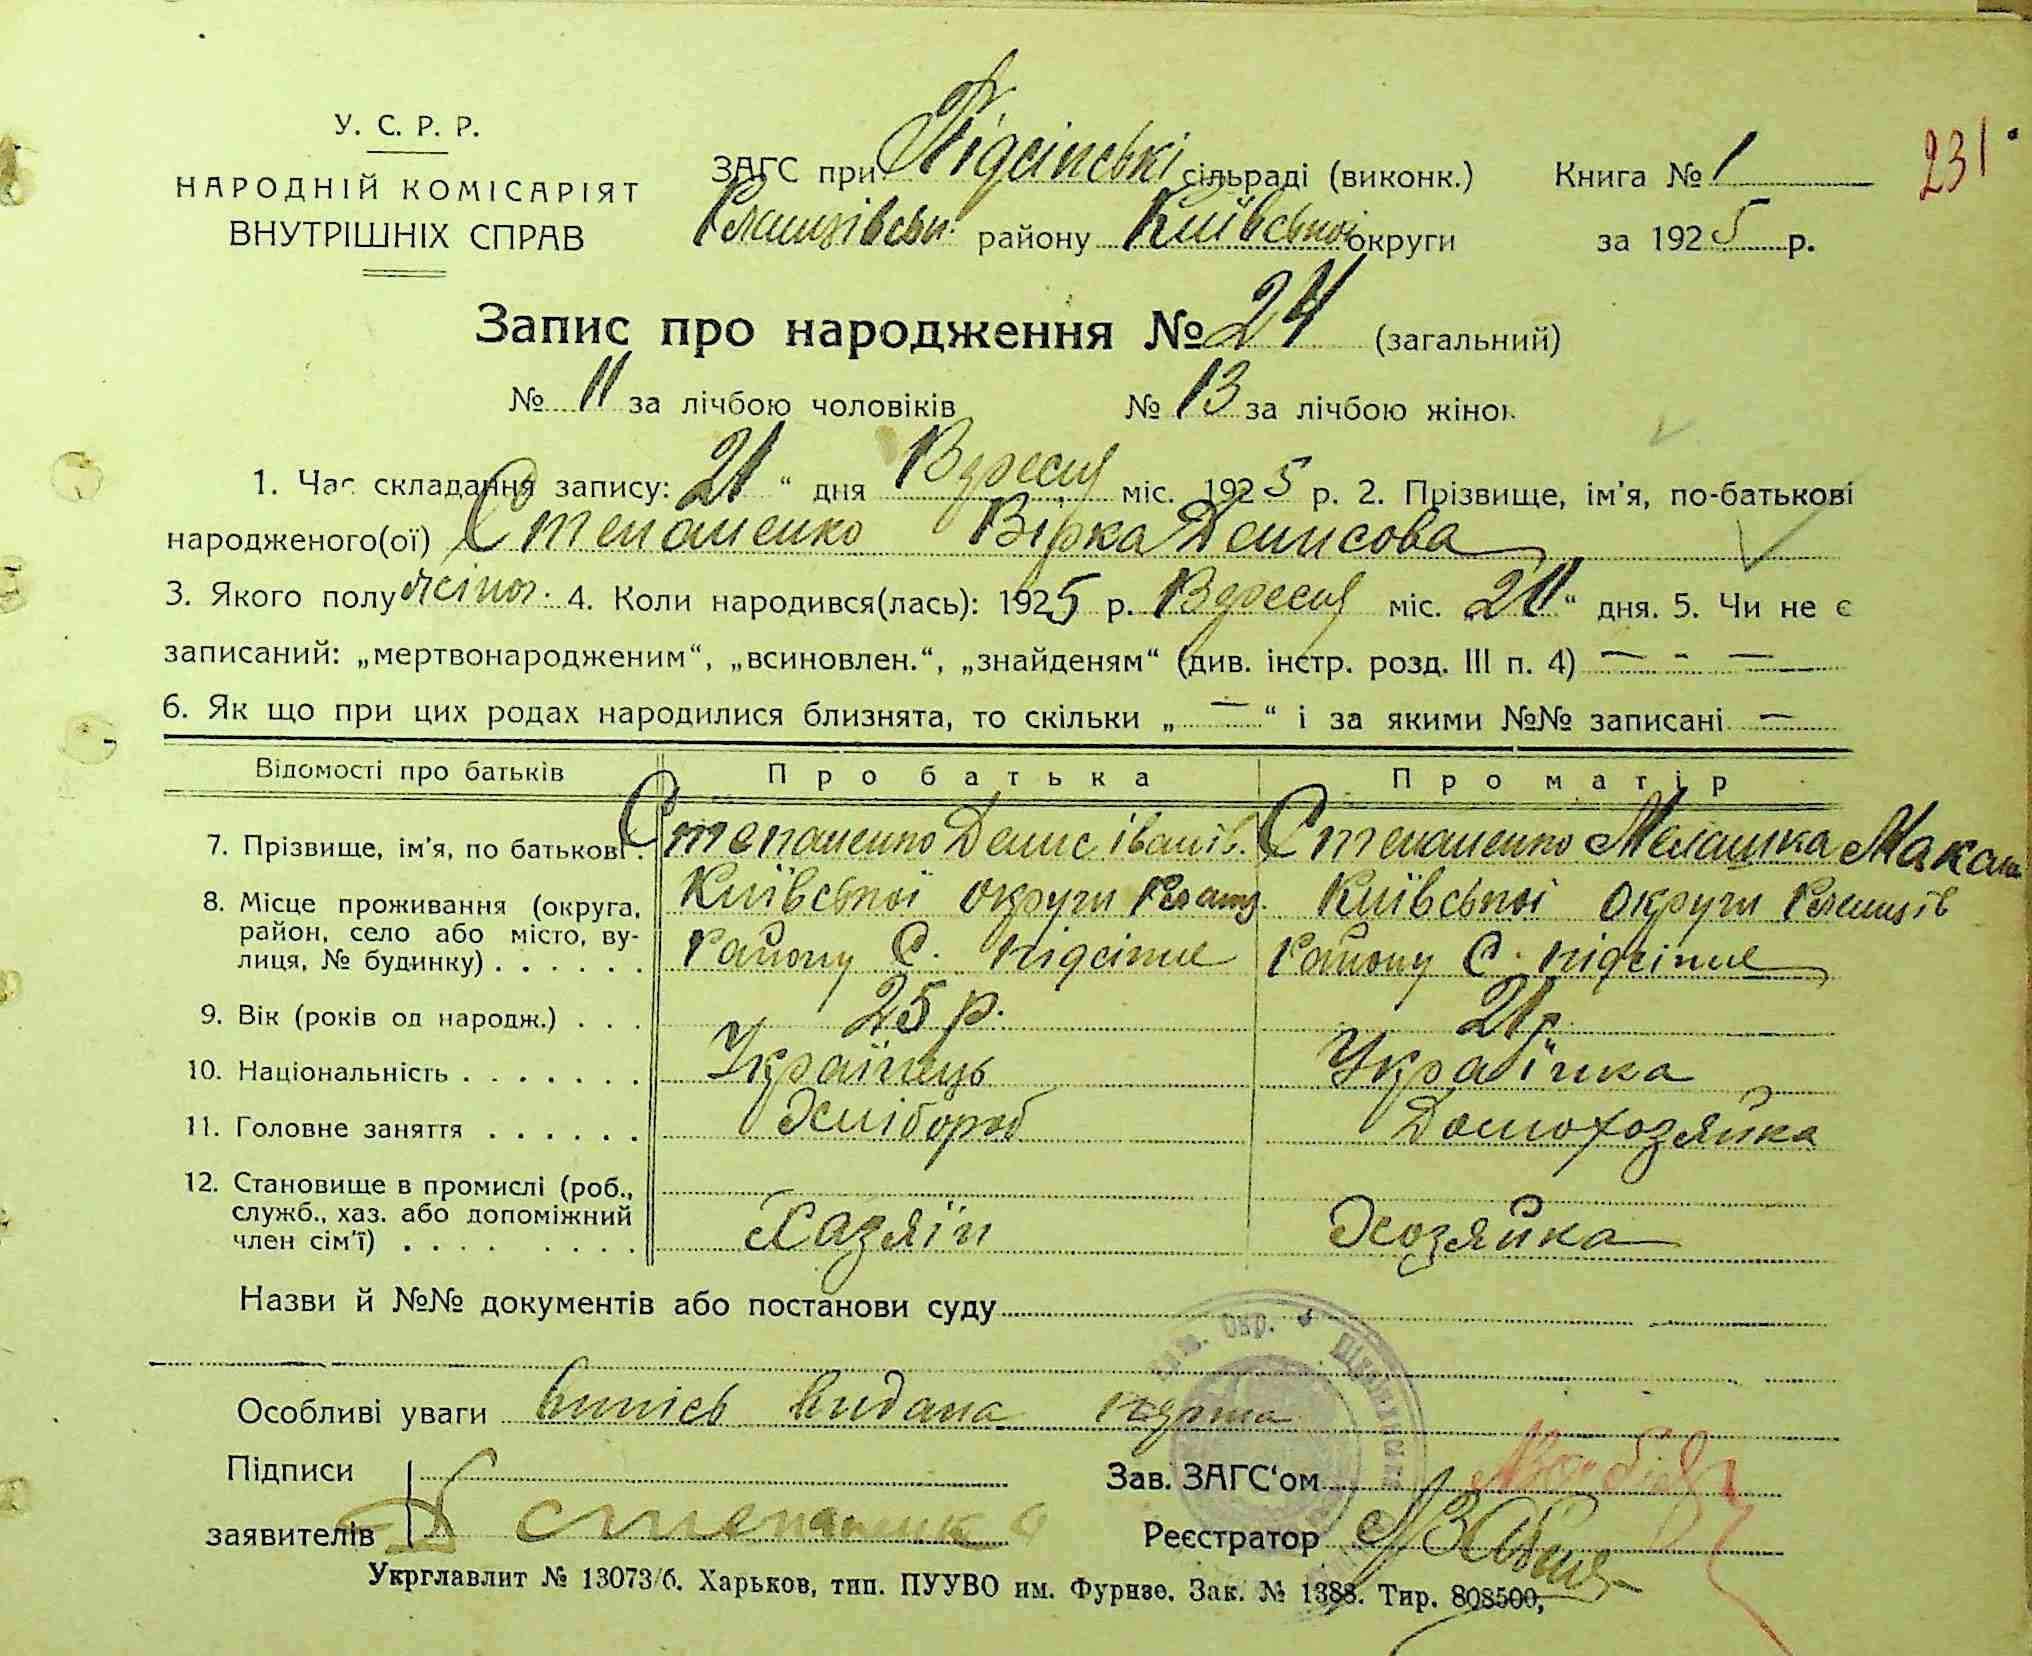 У. С. Р. Р.
НАРОДНІЙ КОМІСАРІЯТ
ВНУТРІШНІХ СПРАВ
ЗАГС при Підсінські сільраді (виконк.)
району Київської округи
Книга № 1
за 1925 р.
231
Запис про народження № 24 (загальний)
№ 11 за лічбою чоловіків № 13 за лічбою жінок
1. Час складання запису: 21 " дня Вересня міс. 1925 р. 2. Прізвище, ім'я, по-батькові
народженого(ої) Степаненко Вірка Денисова
3. Якого полу жіноч. 4. Коли народився(лась): 1925 р. Вересня міс. 21 " дня. 5. Чи не є
записаний: „мертвонародженим“, „всиновлен.“, „знайденям“ (див. інстр. розд. III п. 4) — - —
6. Як що при цих родах народилися близнята, то скільки „ — “ і за якими №№ записані —
Відомості про батьків Про батька Про матір
7. Прізвище, ім'я, по батькові. Степаненко Денис Іванів. Степаненко Мелашка
8. Місце проживання (округа, Київської округи Київської округи
район, село або місто, ву- району С. Підсінне району С. Підсінне
лиця, № будинку) . . . . . .
9. Вік (років од народж.) . . . 25 р. 21 р.
10. Національність . . . . . . . Українець Українка
11. Головне заняття . . . . . . Хлібороб Домохозяйка
12. Становище в промислі (роб.,
служб., хаз. або допоміжний Хазяїн Хозяйка
член сім'ї) . . . . . . . . .
Назви й №№ документів або постанови суду
Особливі уваги випісь видана
Підписи
заявителів Д Степаненко
Зав. ЗАГС‘ом
Реєстратор
Укрглавлит № 13073/б. Харьков, тип. ПУУВО им. Фурнзе. Зак. № 1388. Тир. 808500,